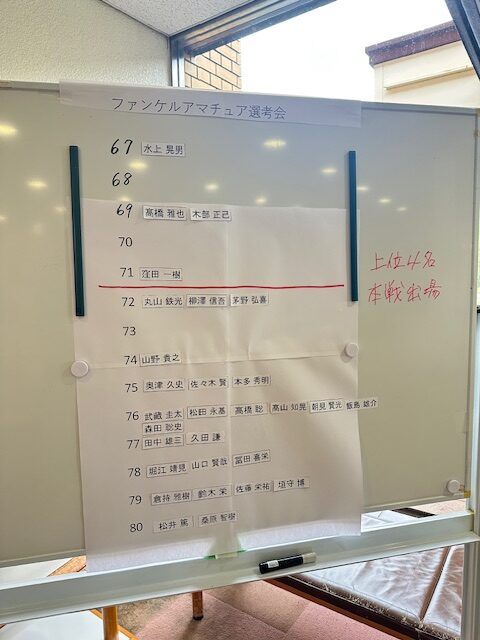 ファンケルアマチュア選考会
67 水上 晃男
68
69 髙橋 雅也 木部 正己
70
71 窪田 一樹
72 丸山 鉄光 柳澤 信吾 茅野 弘喜
73
74 山野 貴之
75 奥津 久史 佐々木 賢 本多 秀明
76 武蔵 圭太 松田 永基 髙橋 聡 髙山 知晃 朝見 賢光 飯島 雄介
森田 聡史
77 田中 雄三 久田 謙
78 堀江 靖見 山口 賢哉 冨田 喜栄
79 倉持 雅樹 鈴木 栄 佐藤 栄祐 垣守 博
80 松井 篤 桑原 智樹
上位4名
本戦出場